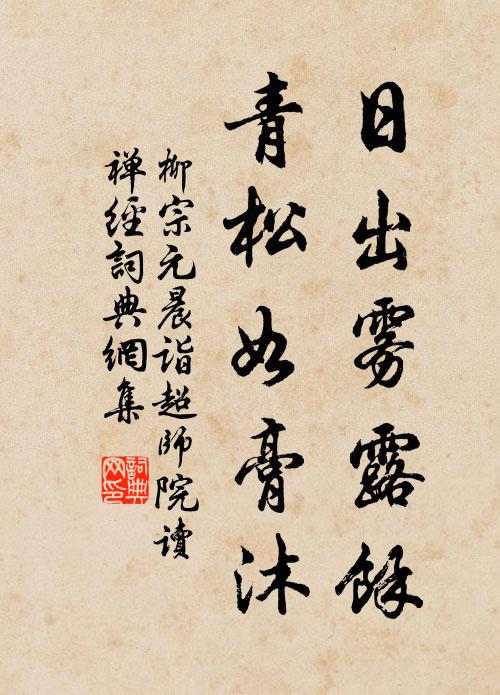 日出雾露餘
青松如膏沐
柳宗元晨诣超师院读
禅經詞典網集
詞典網印